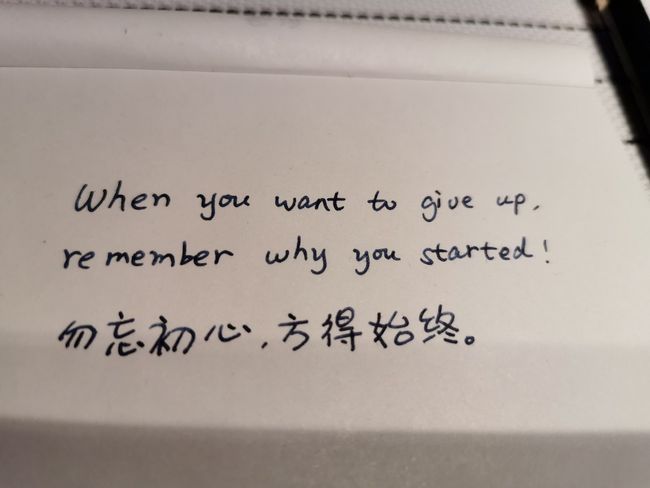 When you want to give up,
remember why you started!
勿忘初心,方得始终。